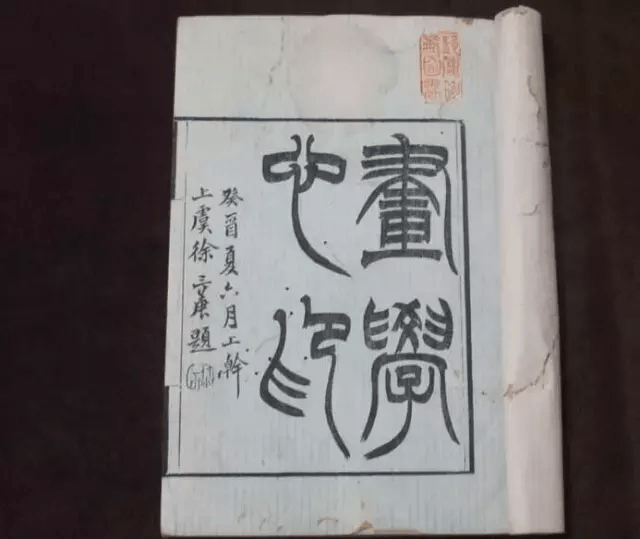 畫學
心印
癸酉夏六月上榦
上虞徐三庚題